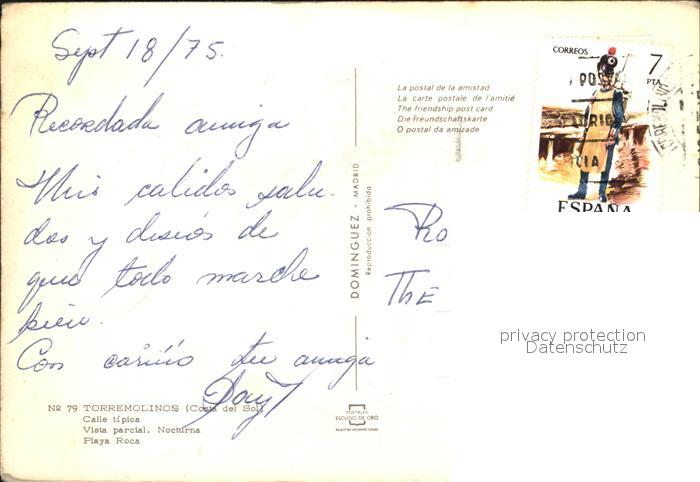 Sept 18/75.
Recordada amiga
Mis calidos salu-
dos y deseos de
que todo marche
bien.
Con cariño tu amiga
Nº 79 TORREMOLINOS (Costa del Sol)
Calle típica
Vista parcial. Nocturna
Playa Roca
DOMINGUEZ - MADRID
Reproducción prohibida
POSTALES
ESCUDO DE ORO
La postal de la amistad
La carte postale de l'amitié
The friendship post card
Die Freundschaftskarte
O postal da amizade
CORREOS
7
PTA
ESPAÑA
Ro
THE
privacy protection
Datenschutz